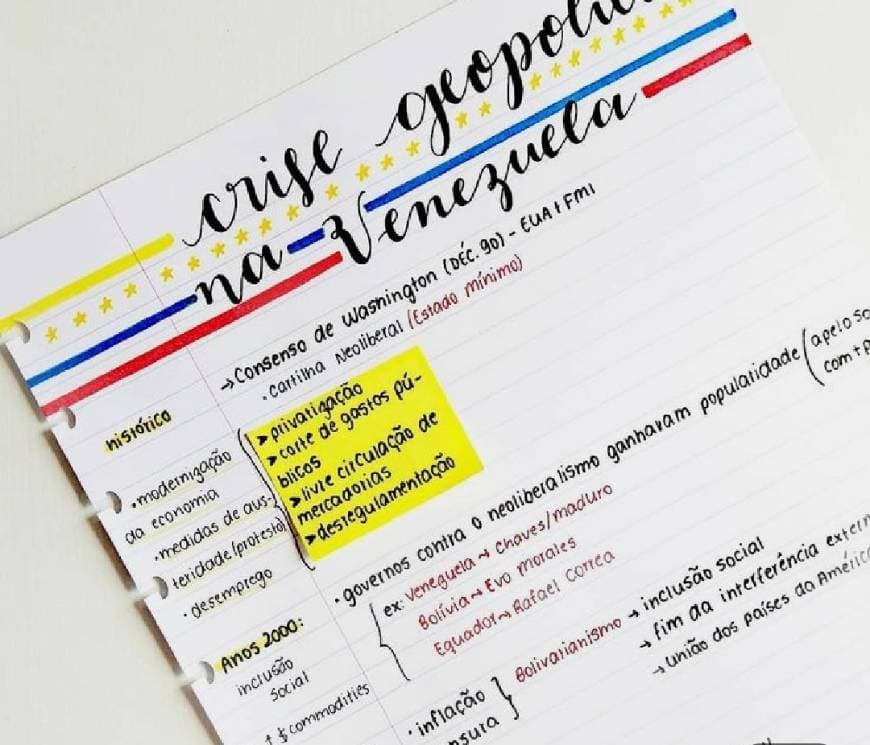 crise geopolític
na Venezuela
→ Consenso de Washington (DÉC. 90) - EUA + FMI
• Cartilha Neoliberal (Estado mínimo)
histórico
➤ privatização
➤ corte de gastos pú-
blicos
➤ livre circulação de
mercadorias
➤ desregulamentação
• modernização
da economia
• medidas de aus-
teridade (protesto)
• desemprego
• governos contra o neoliberalismo ganhavam popularidade (apelo so
com + p
ex: Veneguela → Chaves/maduro
Bolívia → Evo morales
Equador → Rafael Correa
Anos 2000:
inclusão
social
↑ $ commodities
• inflação
nsura
Bolivarianismo → inclusão social
→ fim da interferência extern
→ união dos países da América